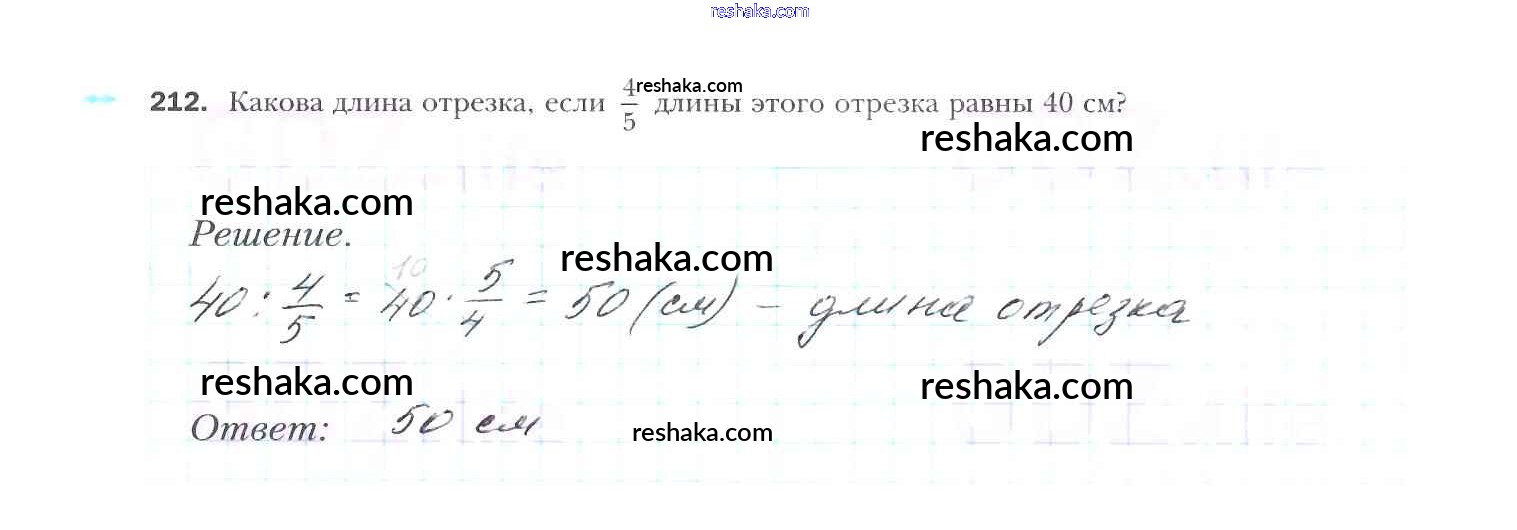 reshaka.com
212. Какова длина отрезка, если 4/5 длины этого отрезка равны 40 см?
reshaka.com
reshaka.com
reshaka.com
Решение.
reshaka.com
10
40 : 4/5 = 40 · 5/4 = 50 (см) – длина отрезка
reshaka.com
reshaka.com
Ответ: 50 см
reshaka.com